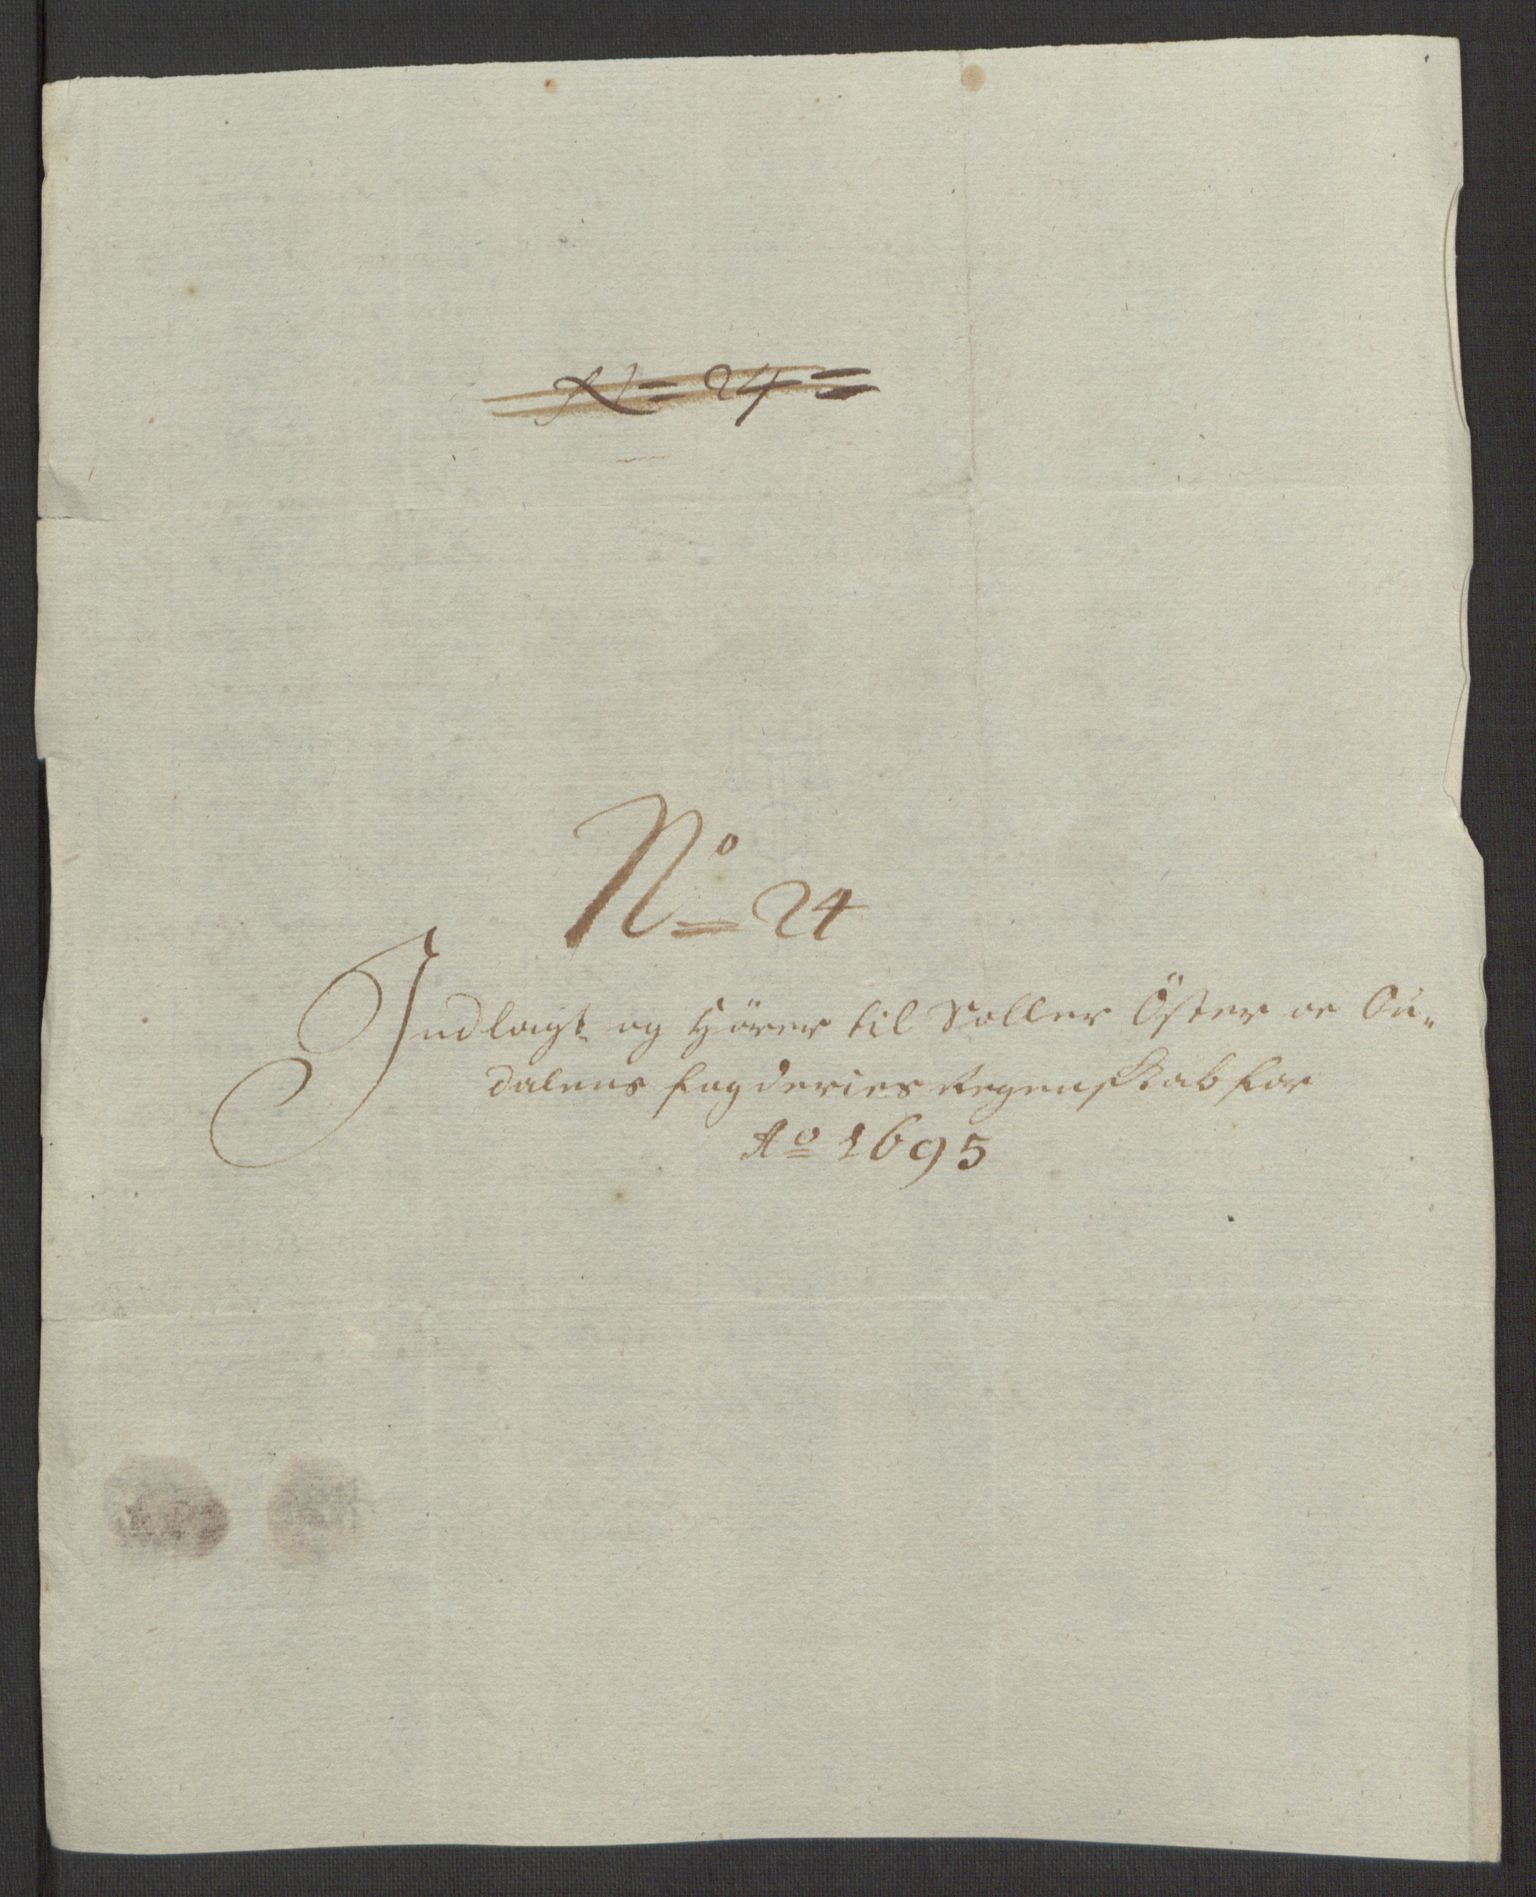 N = 24 =
No = 24
Indlagt og Hörer til Soller Öster oc Ou-
dalens fogderies Regenskab for
Ao 1695